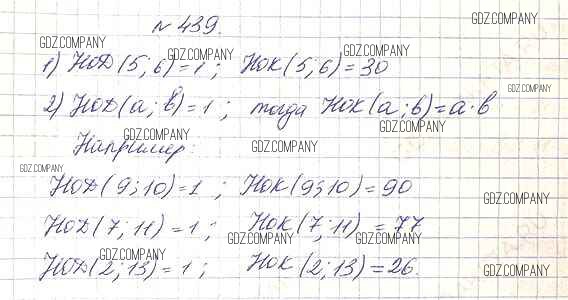 № 439.
1) НОД(5; 6) = 1; НОК(5; 6) = 30
2) НОД(a; b) = 1; тогда НОК(a; b) = a · b
Например:
НОД(9; 10) = 1; НОК(9; 10) = 90
НОД(7; 11) = 1; НОК(7; 11) = 77
НОД(2; 13) = 1; НОК(2; 13) = 26.
GDZ.COMPANY
GDZ.COMPANY
GDZ.COMPANY
GDZ.COMPANY
GDZ.COMPANY
GDZ.COMPANY
GDZ.COMPANY
GDZ.COMPANY
GDZ.COMPANY
GDZ.COMPANY
GDZ.COMPANY
GDZ.COMPANY
GDZ.COMPANY
GDZ.COMPANY